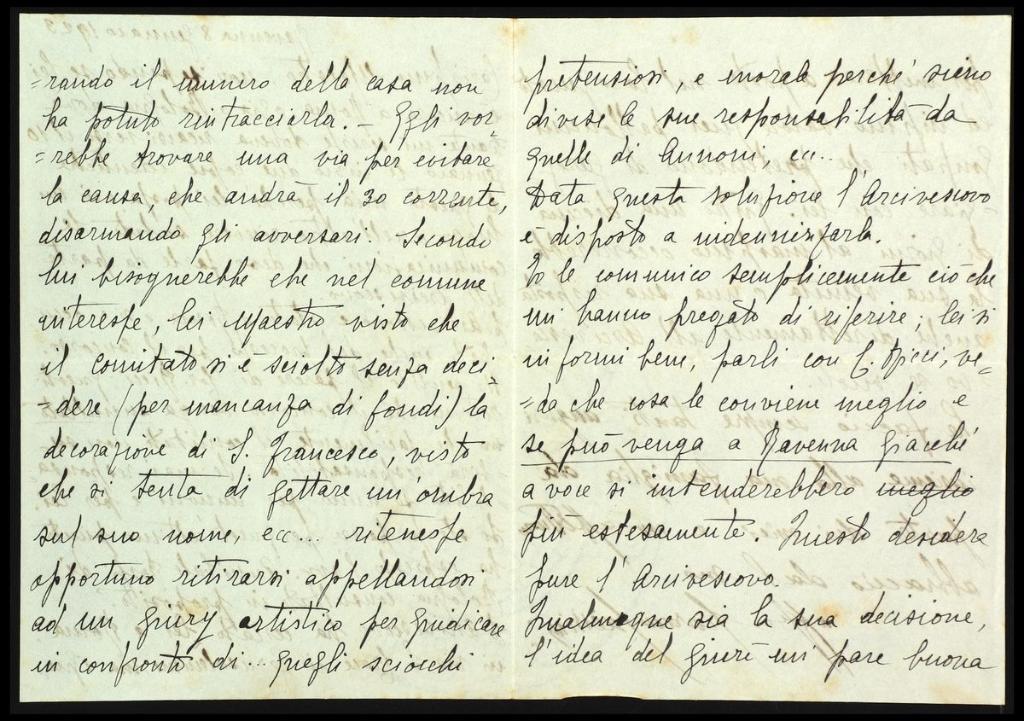 =rando il numero della casa non
ha potuto rintracciarla. – Egli vor-
=rebbe trovare una via per evitare
la causa, che andrà il 30 corrente,
disarmando gli avversari. Secondo
lui bisognerebbe che nel comune
interesse, lei Maestro visto che
il comitato si è sciolto senza deci-
=dere (per mancanza di fondi) la
decorazione di S. Francesco, visto
che si tenta di gettare un'ombra
sul suo nome, ecc... ritenesse
opportuno ritirarsi appellandosi
ad un giury artistico per giudicare
in confronto di... quegli sciocchi
pretensiosi, e morale perché siano
divise le sue responsabilità da
quelle di Annoni ecc..
Data questa soluzione l'Arcivescovo
è disposto a indennizzarla.
Io le comunico semplicemente ciò che
mi hanno pregato di riferire; lei si
informi bene, parli con C. Ricci, ve-
=da che cosa le conviene meglio e
se può venga a Ravenna giacché
a voce si intenderebbero meglio
più estesamente. Questo desidera
pure l'Arcivescovo.
Qualunque sia la sua decisione,
l'idea del giurì mi pare buona